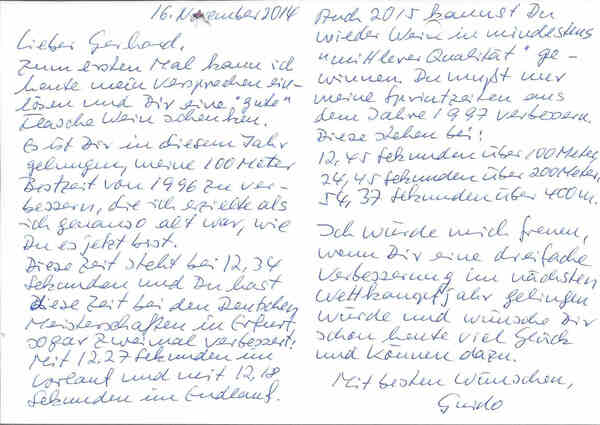 16. November 2014
Lieber Gerhard,
zum ersten Mal kann ich
heute mein Versprechen ein-
lösen und Dir eine "gute"
Flasche Wein schenken.
Es ist Dir in diesem Jahr
gelungen, meine 100 Meter
Bestzeit von 1996 zu ver-
bessern, die ich erzielte als
ich genauso alt war, wie
Du es jetzt bist.
Diese Zeit steht bei 12,34
Sekunden und Du hast
diese Zeit bei den Deutschen
Meisterschaften in Erfurt,
sogar zweimal verbessert!
Mit 12,27 Sekunden im
Vorlauf und mit 12,18
Sekunden im Endlauf.
Auch 2015 kannst Du
wieder Wein in mindestens
"mittlerer Qualität" ge-
winnen. Du mußt nur
meine Sprintzeiten aus
dem Jahre 1997 verbessern.
Diese stehen bei:
12,45 Sekunden über 100 Meter,
24,45 Sekunden über 200 Meter,
54,37 Sekunden über 400 m.
Ich würde mich freuen,
wenn Dir eine dreifache
Verbesserung im nächsten
Wettkampfjahr gelingen
würde und wünsche Dir
schon heute viel Glück
und Können dazu.
Mit besten Wünschen,
Guido